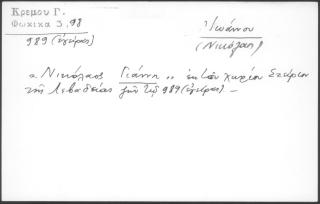 Κρεμου Γ.
Φωκικα 3,98
989 (ἐγείρας)
Ἰωάννου
(Νικόλαος)
"Νικόλαος Γιάννη" ἐκ τοῦ χωρίου Στείριον
τῆς Λεβαδείας ζῶν τῷ 989 (ἐγείρας) –